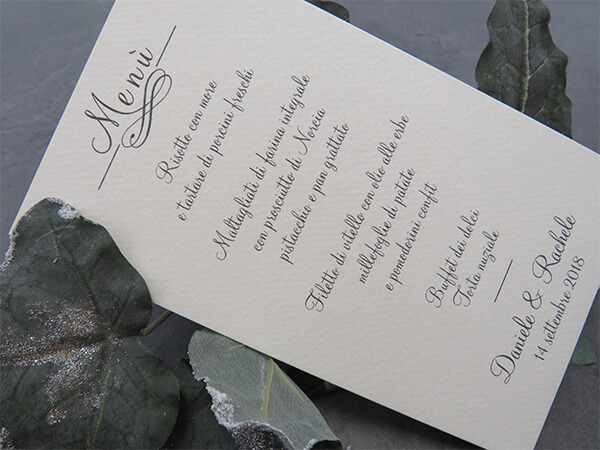 Menù
Risotto con more
e tartare di porcini freschi
Maltagliati di farina integrale
con prosciutto di Norcia
pistacchio e pan grattato
Filetto di vitello con olio alle erbe
millefoglie di patate
e pomodorini confit
Buffet dei dolci
Torta nuziale
Daniele & Rachele
14 settembre 2018